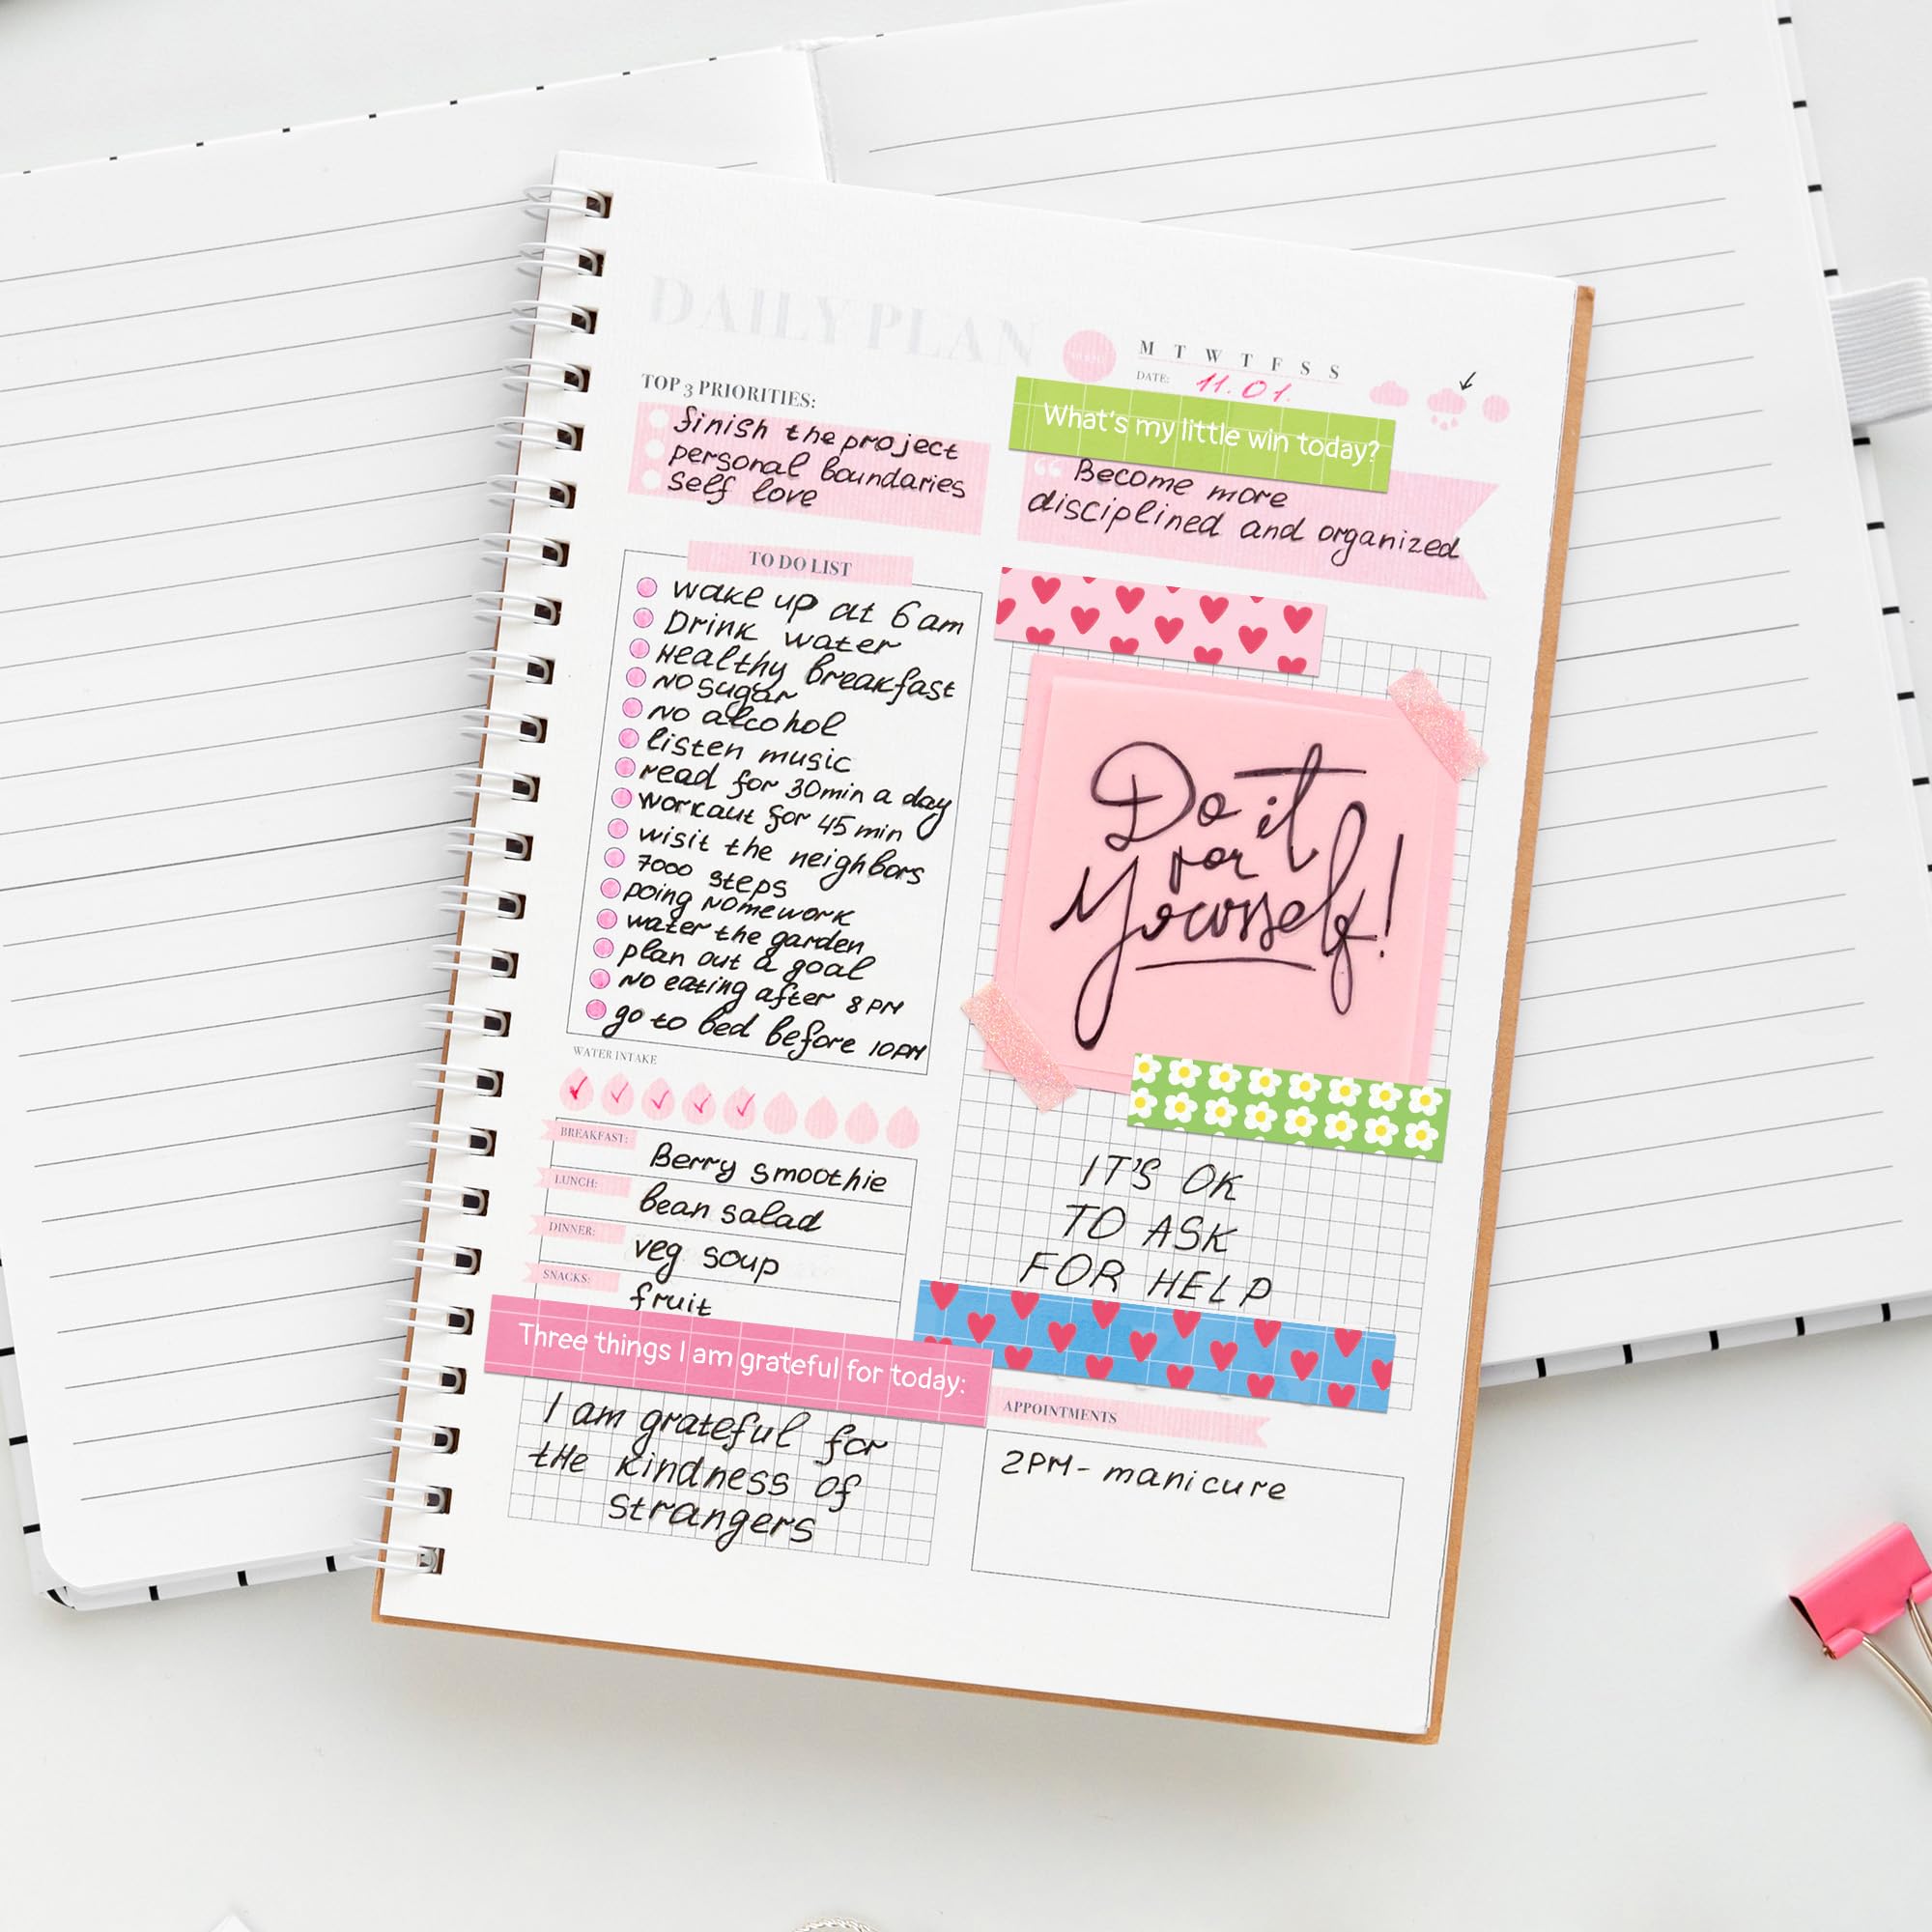 DAILY PLAN
M T W T F S S
DATE: 11.01.
TOP 3 PRIORITIES:
finish the project
personal boundaries
self love
What's my little win today?
Become more
disciplined and organized
TO DO LIST
wake up at 6 am
Drink water
Healthy breakfast
NO sugar
NO alcohol
listen music
read for 30 min a day
workaut for 45 min
wisit the neighbors
7000 steps
poing homework
water the garden
plan out a goal
NO eating after 8 PM
go to bed before 10 PM
WATER INTAKE
BREAKFAST: Berry smoothie
LUNCH: bean salad
DINNER: veg soup
SNACKS: fruit
Three things I am grateful for today:
I am grateful for
the kindness of
strangers
Do it
for
Yourself!
IT'S OK
TO ASK
FOR HELP
APPOINTMENTS
2PM - manicure